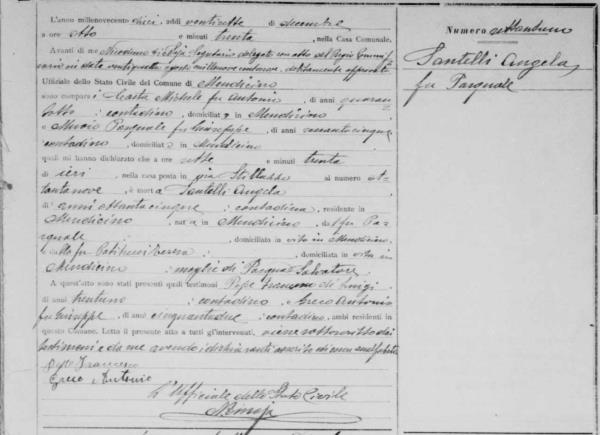 L'anno millenovecento dieci, addì ventisette di decembre
a ore otto e minuti trenta, nella Casa Comunale.
Avanti di me Nicodemo Segretario delegato con atto del Regio
in data ventiquattro millenove debitamente approvato
Ufficiale dello Stato Civile del Comune di Mendicino
sono comparsi Michele fu Antonio, di anni quaran
totto : contadino, domiciliato in Mendicino
e Muoio Pasquale fu Giuseppe, di anni sessantacinque
contadino, domiciliato in Mendicino
quali mi hanno dichiarato che a ore sette e minuti trenta
di ieri, nella casa posta in via al numero ot-
tantanove, è morta Santelli Angela
di anni ottantacinque : contadina, residente in
Mendicino, nata in Mendicino, da fu Pa-
squale, domiciliato in vita in Mendicino,
e da fu Teresa, domiciliata in vita in
Mendicino : moglie di Salvatore
A quest'atto sono stati presenti quali testimoni Pepe Francesco di Luigi
di anni trentuno : contadino, e Greco Antonio
fu Giuseppe, di anni cinquantadue : contadino, ambi residenti in
questo Comune. Letto il presente atto a tutti gl'intervenuti, viene sottoscritto dai
testimoni e da me avendo i dichiaranti asserito di essere analfabeti
Pepe Francesco
Greco Antonio
L'Ufficiale dello Stato Civile
Numero ottantuno
Santelli Angela
fu Pasquale